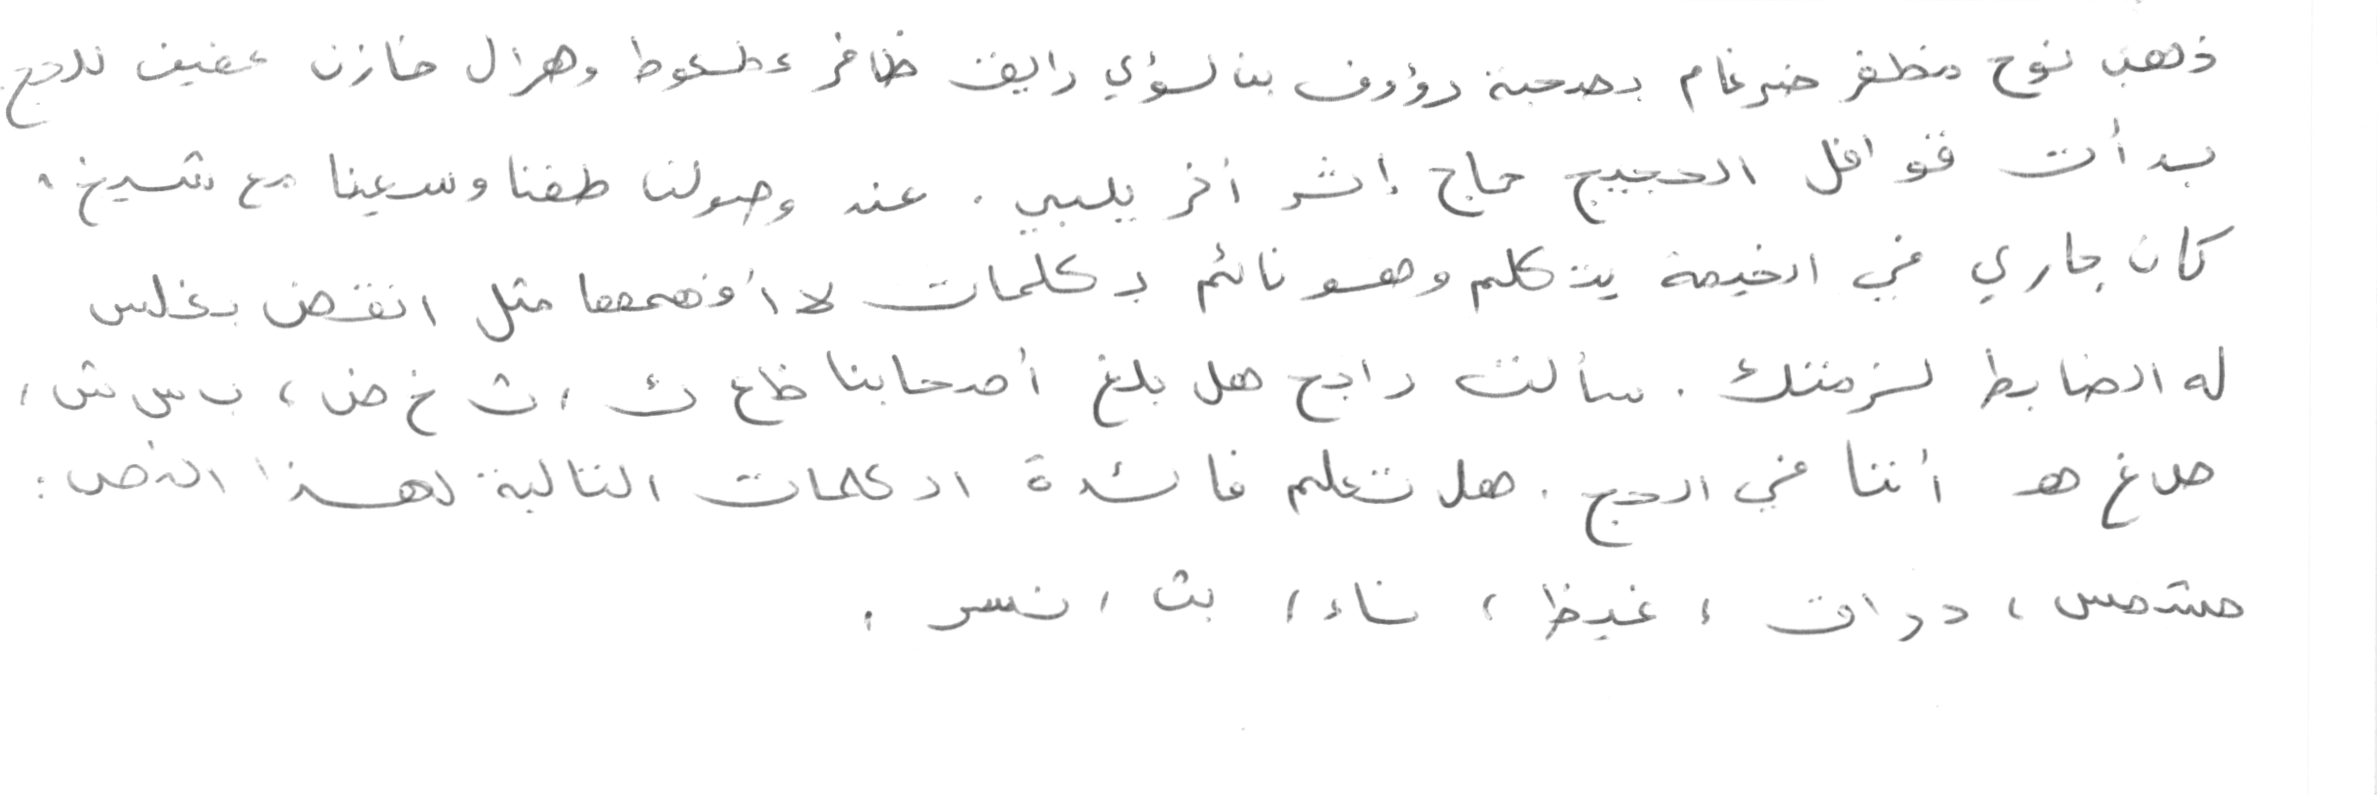 ذهب نوح مظفر ضرغام بصحبة رؤوف بن لؤي رايق ظافر عطعوط وهزال خازن عفيف للحج.
بدأت قوافل الحجيج حاج إثر أخر يلبي. عند وصولنا طفنا وسعينا مع شيخ.
كان جاري في الخيمة يتكلم وهو نائم بكلمات لا أفهمها مثل انقض بغلس
له الضابط لزمتك. سألت رابح هل بلغ أصحابنا ظع ك، ث خ ض، ب س ش،
صلاغ هـ أننا في الحج. هل تعلم فائدة الكلمات التالية لهذا النص:
مشمس، دراق، غيظ، ناء، بث، نسر.